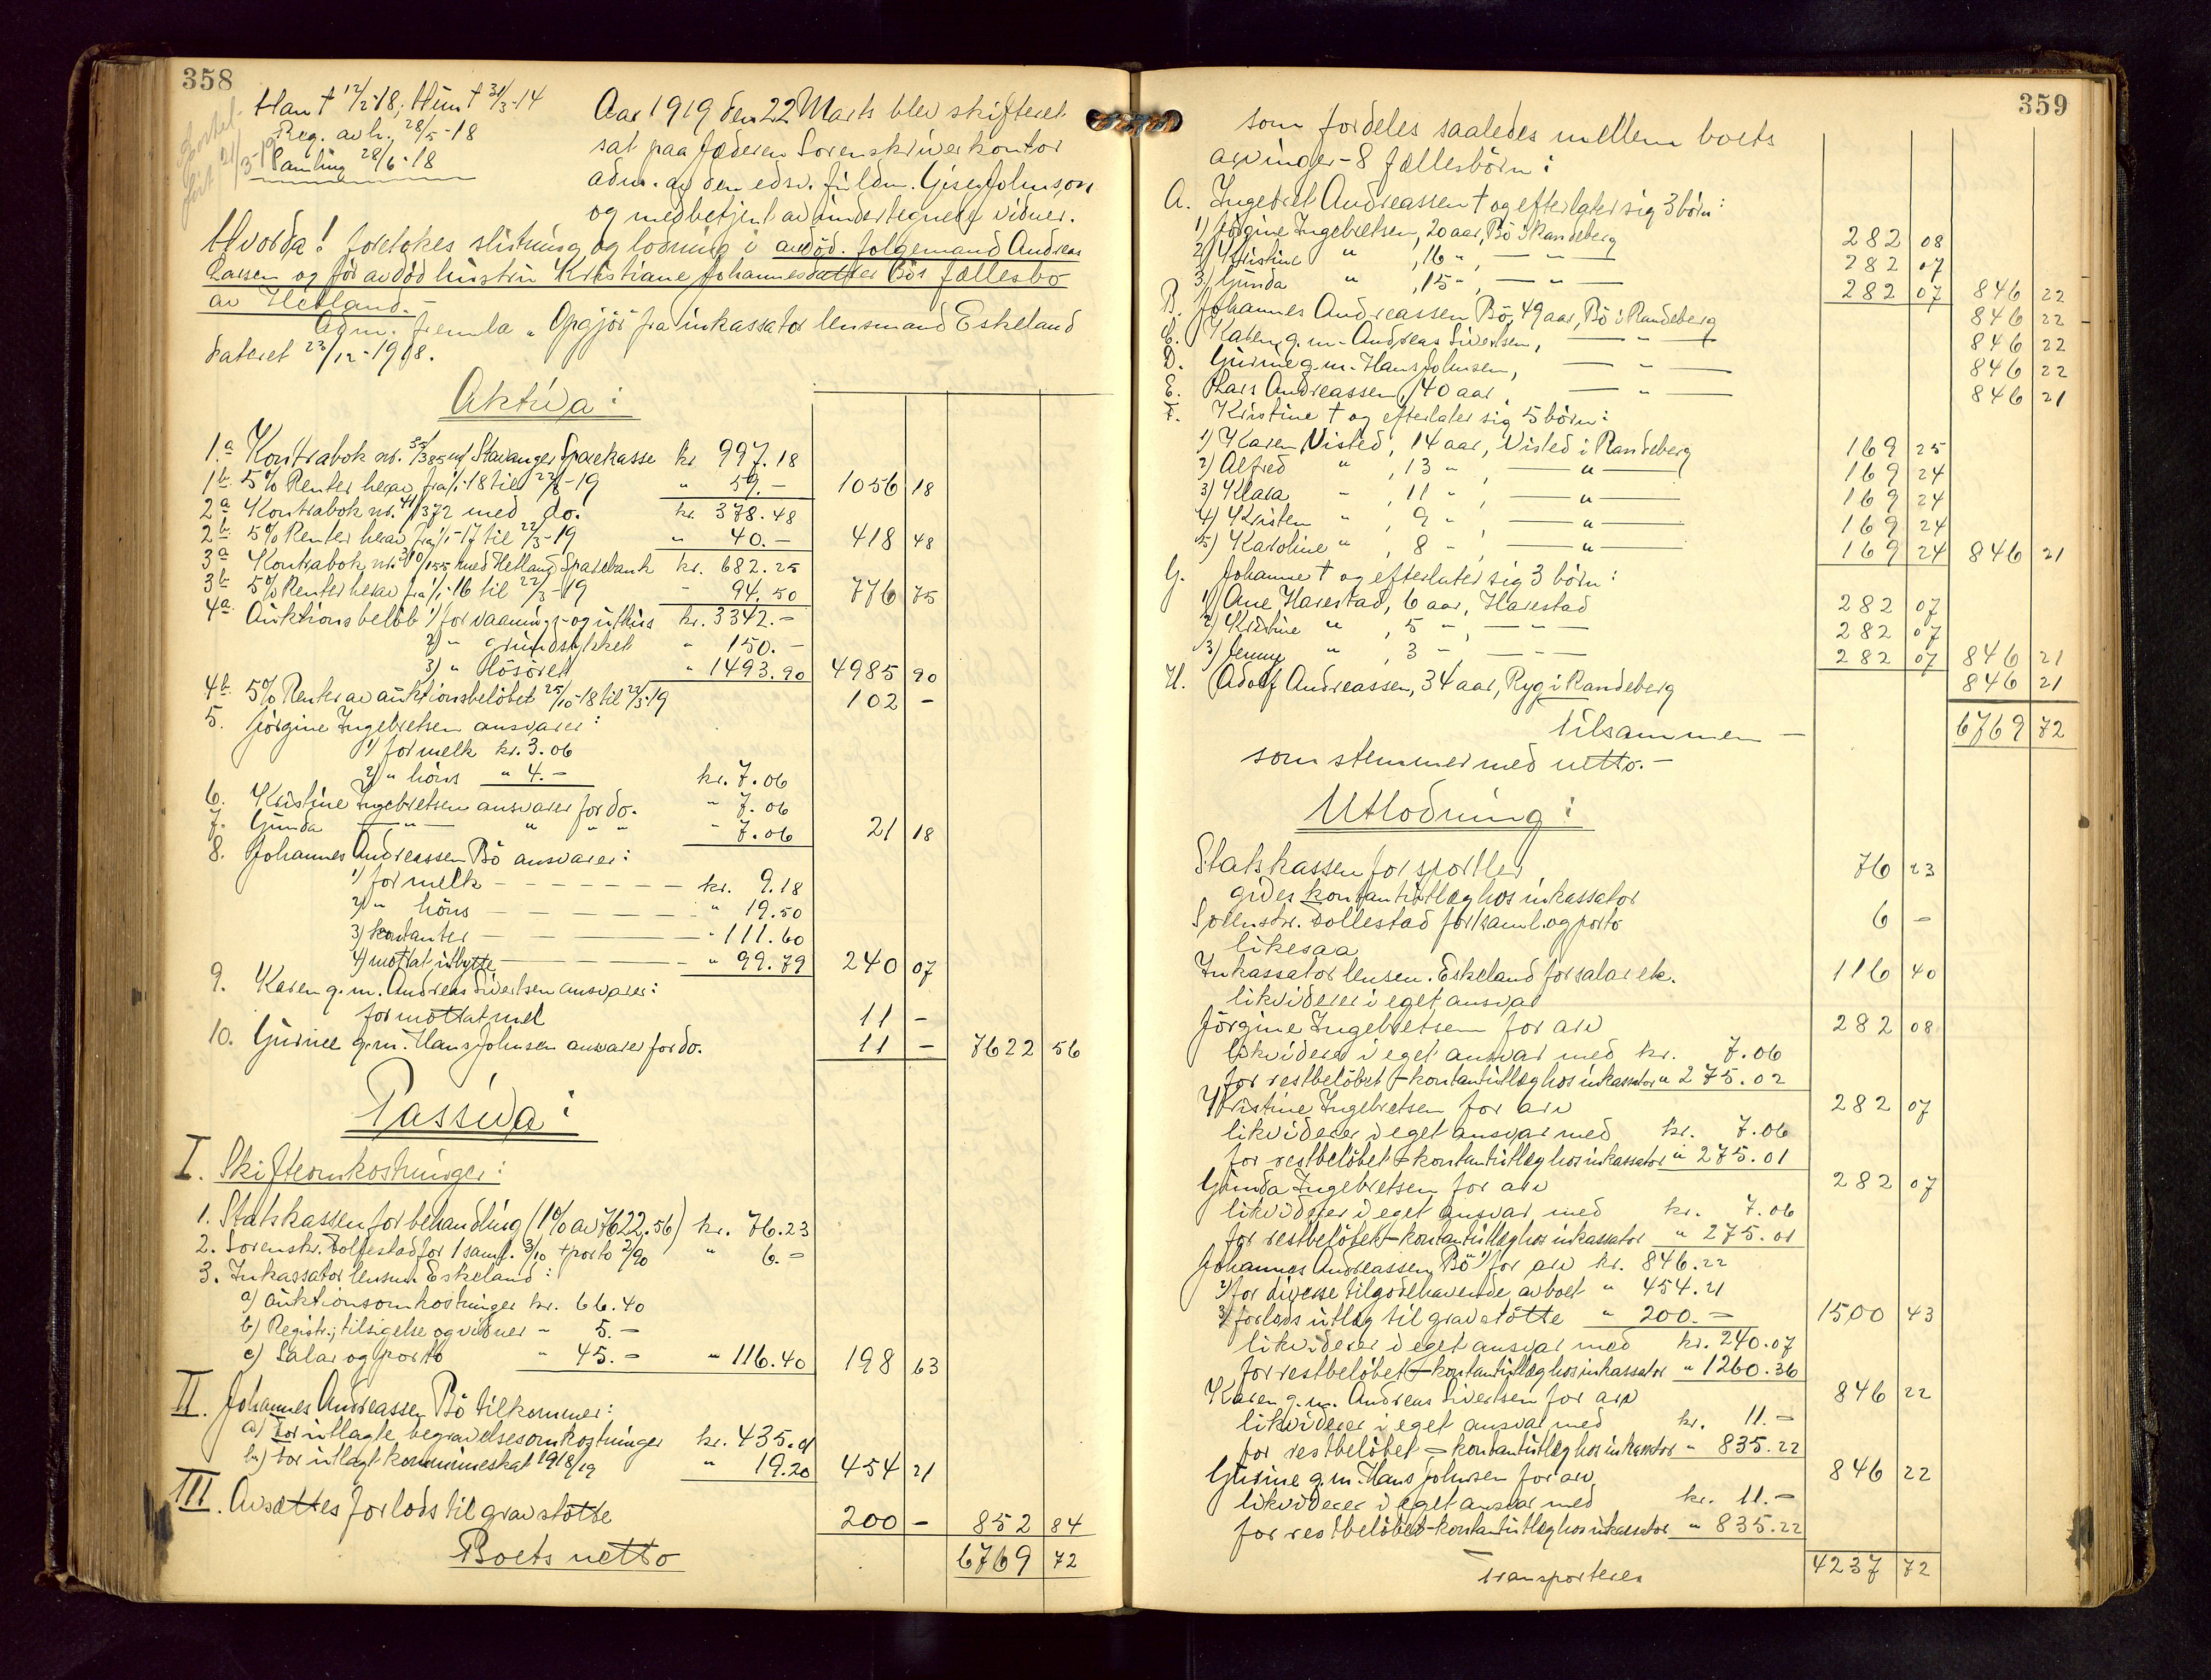 358
Han † 12/2-18, Hun † 31/3-14
Reg. avh. 28/5-18
Samling 28/6-18
ført 21/3-19
Aar 1919 den 22 Marts blev skifteret
sat paa Jæderen Sorenskriverkontor
adm. av den edsv. fuldm. Giser Johnson
og medbetjent av undertegnede vidner.
Hvorda! foretokes slutning og lodning i avdød. folgemand Andreas
Larsen og før avdød hustru Kristiane Johannesdatter Bös fællesbo
av Hetland.-
Adm. fremla "Opgjör" fra inkassator lensmand Eskeland
dateret 23/12-1918.
Aktiva:
1.a Kontrabok nr. 35/385 m/ Stavanger Sparekasse kr 997.18
1b 5% Renter herav fra 1/1-18 til 22/3-19 " 59.- 1056 18
2a Kontrabok nr. 41/372 med do. kr. 378.48
2b 5% Renter herav fra 1/1-17 til 22/3-19 " 40.- 418 48
3a Kontrabok nr. 310/155 med Hetland Sparebank kr. 682.25
3b 5% Renter herav fra 1/1-16 til 22/3-19 - 94.50 776 75
4a Auktionsbeløb 1) for vaanings- og uthus kr. 3342.-
2) " grundstykket " 150.-
3) " lösöret " 1493.90 4985 90
4b 5% Renter av auktionsbelöbet 25/10-18 til 22/3-19 102 -
5. Jörgine Ingebretsen ansvarer:
1) for melk kr. 3.06
2) " höns " 4.- kr. 7.06
6. Kristine Ingebretsen ansvarer for do. " 7.06
7. Gunda — " — " " " - 7.06 21 18
8. Johannes Andreassen Bö ansvarer:
1) for melk - - - - - - - kr. 9.18
2) " höns - - - - - - - " 19.50
3) kontanter - - - - - - - " 111.60
4) mottat utbytte - - - - - - " 99.79 240 07
9. Karen g.m. Andreas Sivertsen ansvarer:
for mottat mel 11 -
10. Gurine g.m. Hans Johnsen ansvarer for do. 11 - 7622 56
Passiva:
I. Skifteomkostninger:
1. Statskassen for behandling (1% av 7622.56) kr. 76.23
2. Sorenskr. Dollestad for 1 saml. 3/10 + porto 2/90 " 6.-
3. Inkassator lensm. Eskeland:
a) auktionsomkostninger kr. 66.40
b) Registr., tilsigelse og vidner - 5.-
c) Salar og porto " 45.- " 116.40 198 63
II. Johannes Andreassen Bö tilkommer:
a) For utlagte begravelsesomkostninger kr. 435.01
b) For utlagt kommuneskat 1918/19 " 19.20 454 21
III. Avsættes forlods til gravstötte 200 - 852 84
Boets netto 6769 72
359
som fordeles saaledes mellem boets
arvinger - 8 fællesbörn:
A. Ingebret Andreassen † og efterlater sig 3 börn:
1) Jörgine Ingebretsen, 20 aar, Bö i Randeberg 282 08
2) Kristine " , 16 " , — " — 282 07
3) Gunda " , 15 " , — " — 282 07 846 22
B. Johannes Andreassen Bö, 49 aar, Bö i Randeberg 846 22
C. Karen g.m. Andreas Sivertsen, — " — 846 22
D. Gurine g.m. Hans Johnsen, — " — 846 22
E. Lars Andreassen, 40 aar, — " — 846 21
F. Kristine † og efterlater sig 5 börn:
1) Karen Visted, 14 aar, Visted i Randeberg 169 25
2) Alfred " , 13 " , — " — 169 24
3) Klara - , 11 " , — " — 169 24
4) Kristen " , 9 " , — " — 169 24
5) Karoline " , 8 - , — " — 169 24 846 21
G. Johanne † og efterlater sig 3 börn:
1) Ane Harestad, 6 aar, Harestad 282 07
2) Kristine " , 5 " , — " — 282 07
3) Jenny " , 3 - , — " — 282 07 846 21
H. Adolf Andreassen, 34 aar, Ryg i Randeberg 846 21
tilsammen — 6769 72
som stemmer med netto.-
Utlodning:
Statskassen for sportler 76 23
gides kontantutlæg hos inkassator
Sorenskr. Dollestad for 1 saml. og porto 6 -
likesaa
Inkassator lensm. Eskeland for salar etc. 116 40
likviderer i eget ansvar
Jörgine Ingebretsen for arv 282 08
likviderer i eget ansvar med kr. 7.06
for restbelöbet - kontantutlæg hos inkassator " 275.02
Kristine Ingebretsen for arv 282 07
likviderer i eget ansvar med kr. 7.06
for restbelöbet - kontantutlæg hos inkassator " 275.01
Gunda Ingebretsen for arv 282 07
likviderer i eget ansvar med kr. 7.06
for restbelöbet - kontantutlæg hos inkassator " 275.01
Johannes Andreassen Bö 1) for arv kr. 846.22
2) for diverse tilgodehavende av boet " 454.21
3) forlods utlæg til gravstötte " 200.- 1500 43
likviderer i eget ansvar med kr. 240.07
for restbelöbet - kontantutlæg hos inkassator " 1260.36
Karen g.m. Andreas Sivertsen for arv 846 22
likviderer i eget ansvar med kr. 11.-
for restbelöbet - kontantutlæg hos inkassator " 835.22
Gurine g.m. Hans Johnsen for arv 846 22
likviderer i eget ansvar med kr. 11.-
for restbelöbet - kontantutlæg hos inkassator " 835.22
Transporteres 4237 72